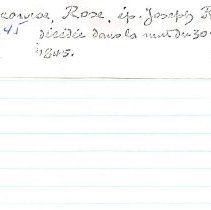 Rose, ép. Joseph
41 décédée dans la nuit du 30
1845.